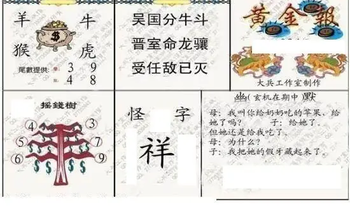 羊 牛
猴 虎
尾數提供：3 4
9 8
吴国分牛斗
晋室命龙骧
受任敌已灭
黄金報
大兵工作室制作
摇錢樹
9 7
4 3
6
怪 字
祥
幽(玄机在期中)默
母：我叫你给奶奶的苹果，给
她了吗？ 子：给她了。
但她还是给我吃了。
母：为什么？
子：我把她的假牙藏起来了。